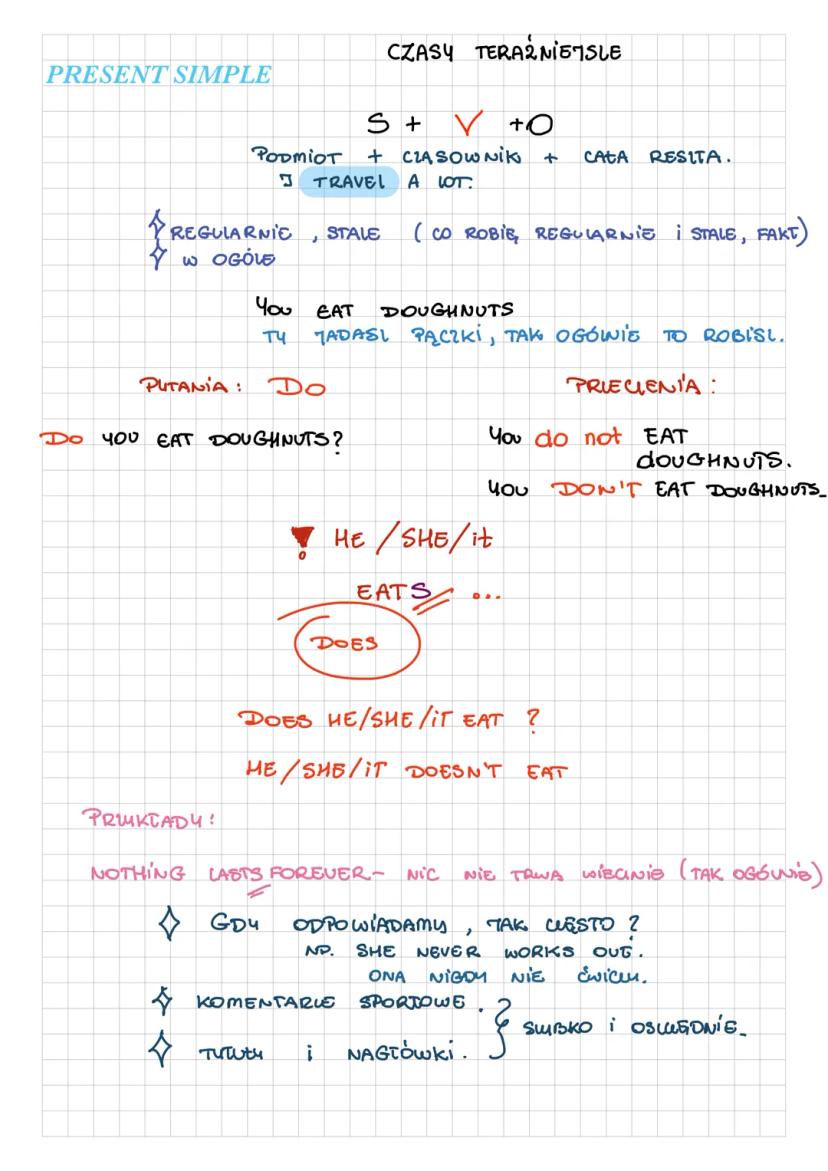 CZASY TERAŹNIEJSZE
PRESENT SIMPLE
S + V + O
PODMIOT + CZASOWNIK + CAŁA RESZTA.
I TRAVEL A LOT.
REGULARNIE, STALE (CO ROBIĘ REGULARNIE I STALE, FAKT)
W OGÓLE
YOU EAT DOUGHNUTS
TY JADASZ PĄCZKI, TAK OGÓLNIE TO ROBISZ.
PYTANIA: DO
PRZECZENIA:
DO YOU EAT DOUGHNUTS?
YOU do not EAT
DOUGHNUTS.
YOU DON'T EAT DOUGHNUTS.
! HE/SHE/it
EATS ...
DOES
DOES HE/SHE/IT EAT ?
HE/SHE/IT DOESN'T EAT
PRZYKŁADY:
NOTHING LASTS FOREVER - NIC NIE TRWA WIECZNIE (TAK OGÓLNIE)
GDY ODPOWIADAMY, JAK CZĘSTO?
NP. SHE NEVER WORKS OUT.
ONA NIGDY NIE ĆWICZY.
KOMENTARZE SPORTOWE.
SZYBKO I OSZCZĘDNIE.
TYTUŁY I NAGŁÓWKI.